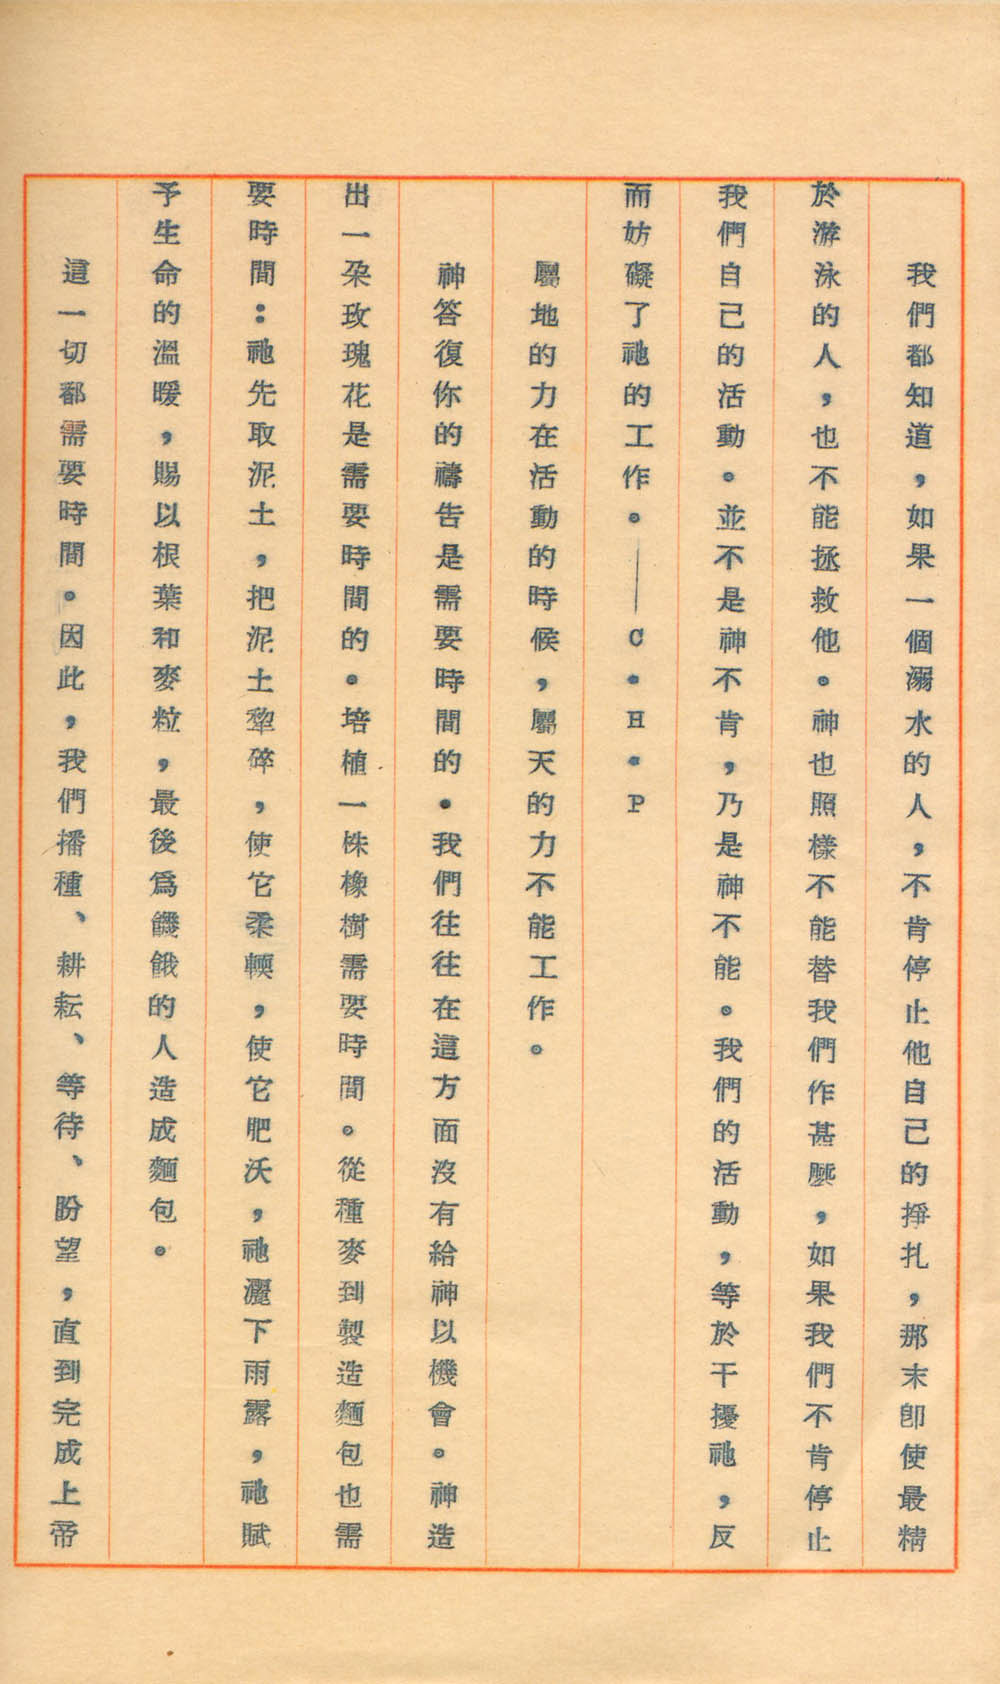 我們都知道，如果一個溺水的人，不肯停止他自己的掙扎，那末卽使最精
於游泳的人，也不能拯救他。神也照樣不能替我們作甚麼，如果我們不肯停止
我們自己的活動。並不是神不肯，乃是神不能。我們的活動，等於干擾祂，反
而妨礙了祂的工作。——C•H•P
屬地的力在活動的時候，屬天的力不能工作。
神答復你的禱告是需要時間的．我們往往在這方面沒有給神以機會。神造
出一朶玫瑰花是需要時間的。培植一株橡樹需要時間。從種麥到製造麵包也需
要時間：祂先取泥土，把泥土犂碎，使它柔輭，使它肥沃，祂灑下雨露，祂賦
予生命的溫暖，賜以根葉和麥粒，最後爲饑餓的人造成麵包。
這一切都需要時間。因此，我們播種、耕耘、等待、盼望，直到完成上帝